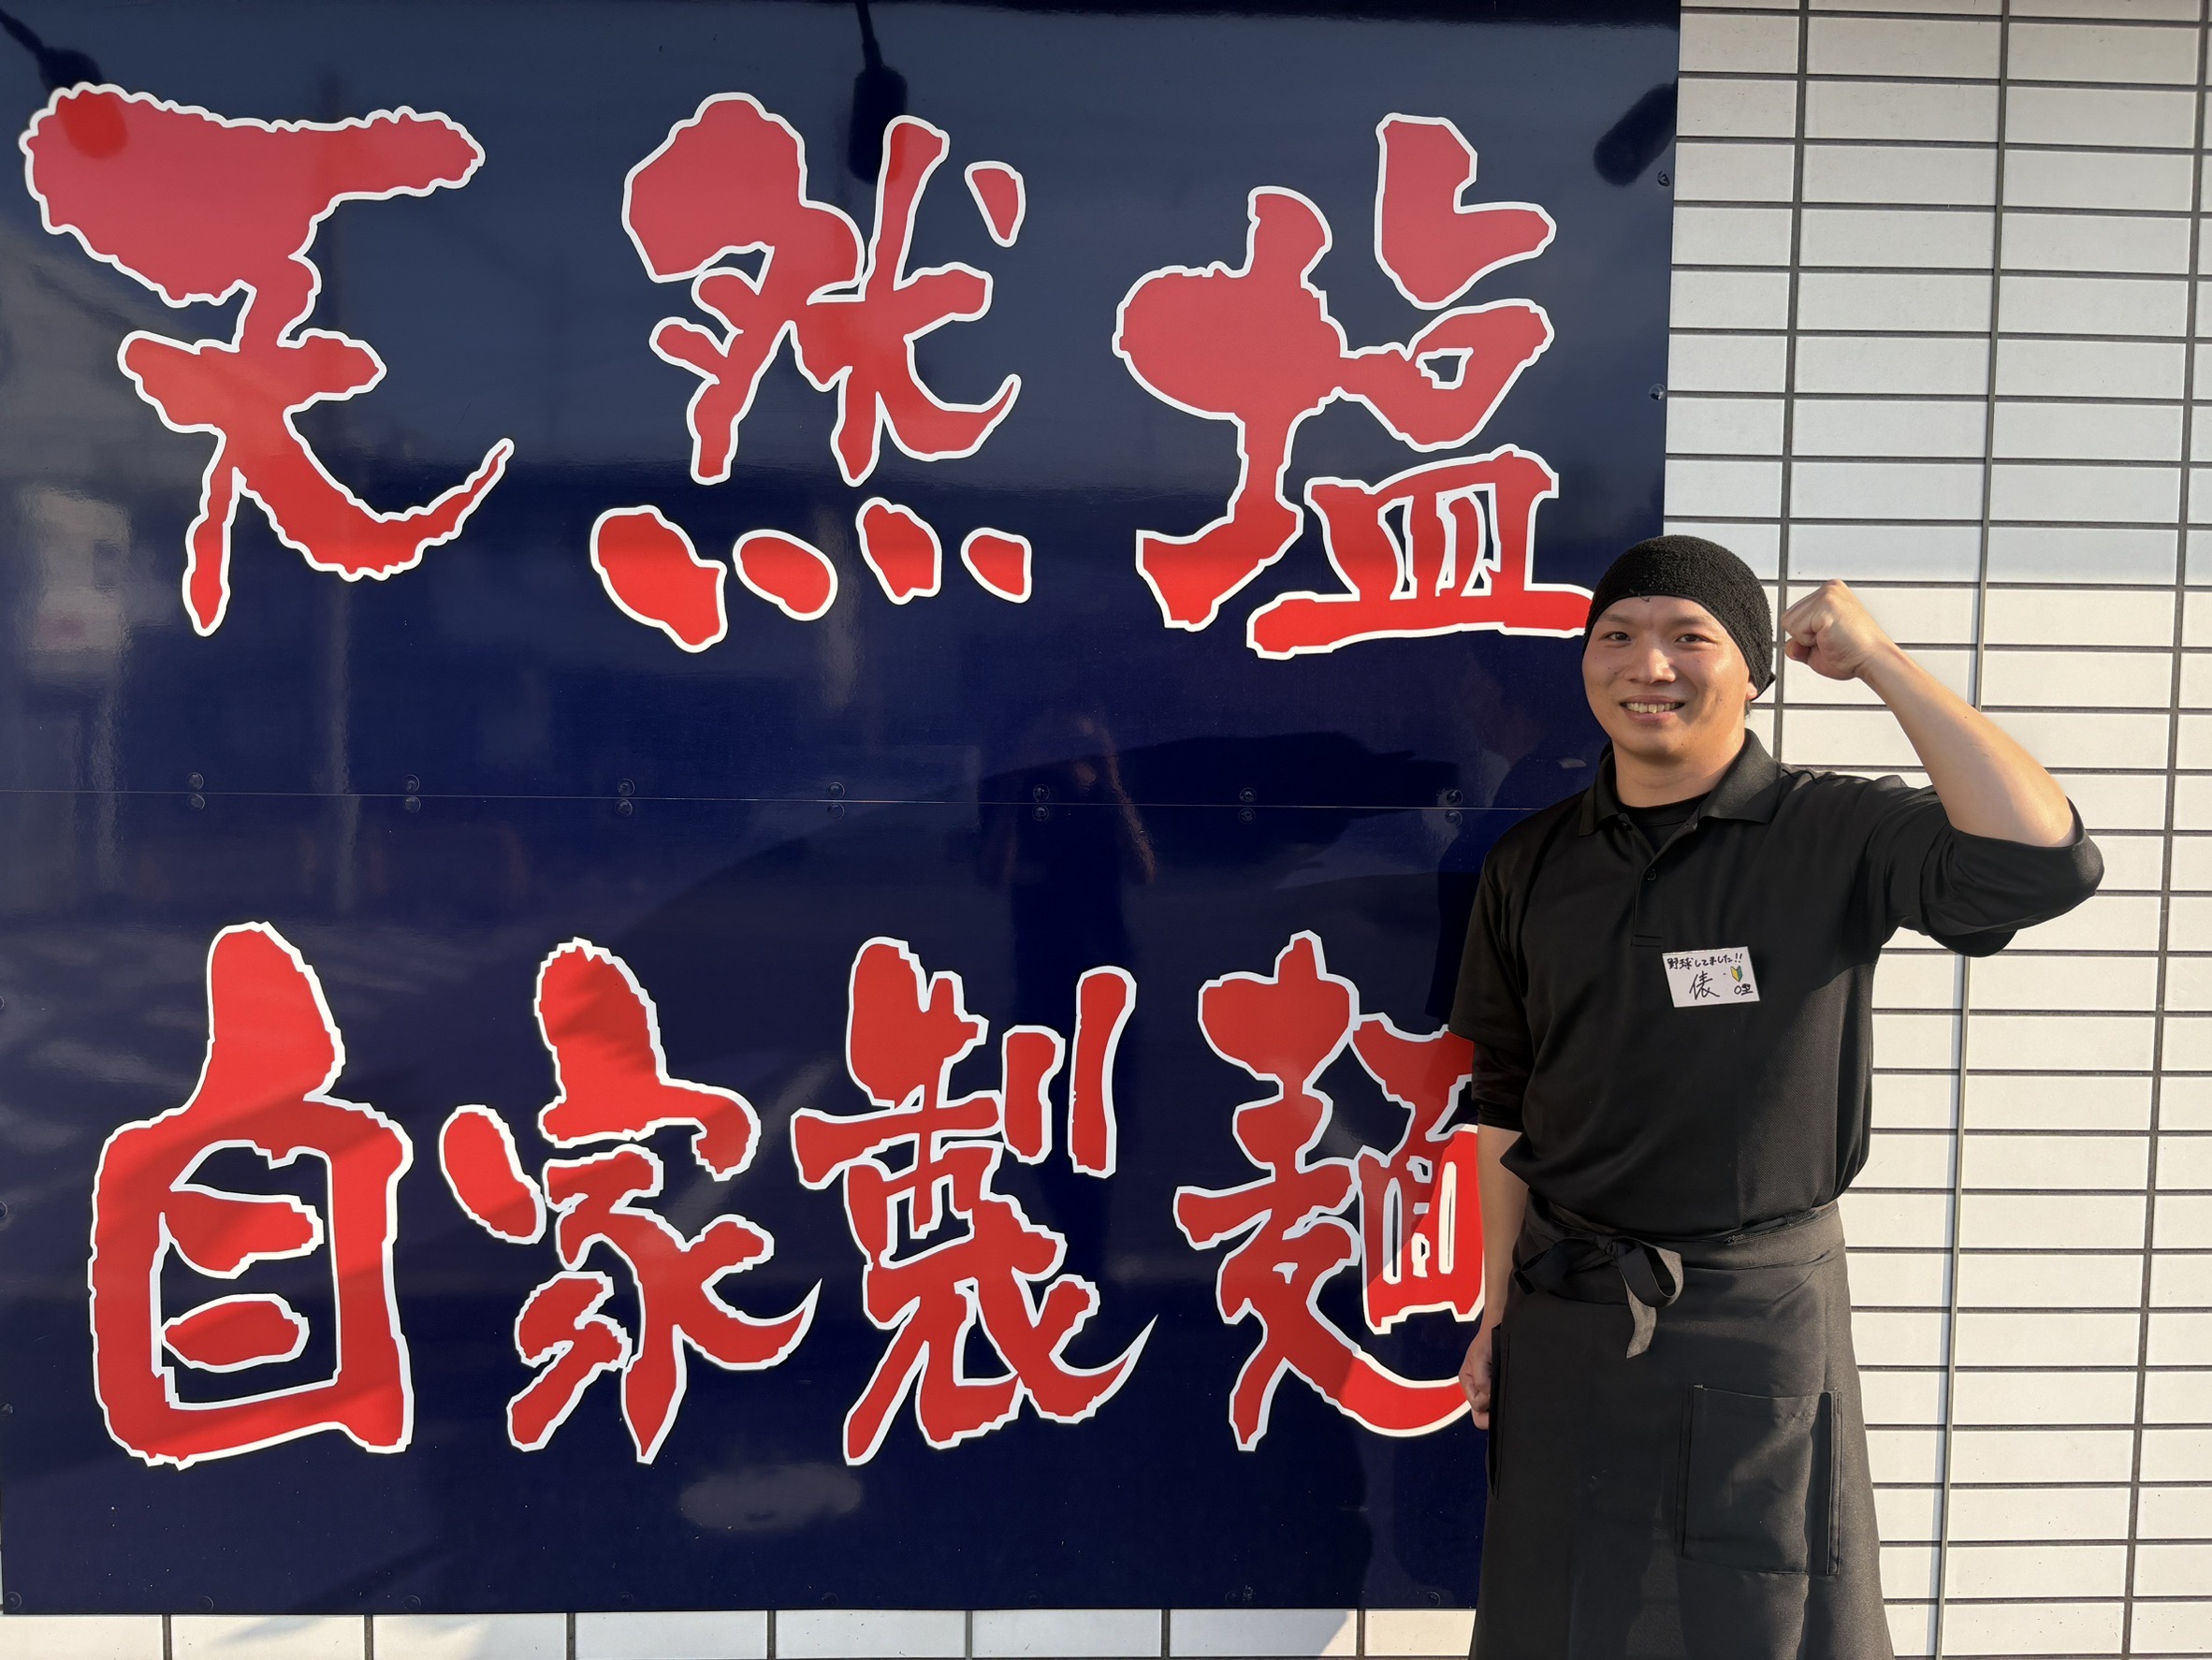 天然塩
自家製麺
野球してました!!
俵